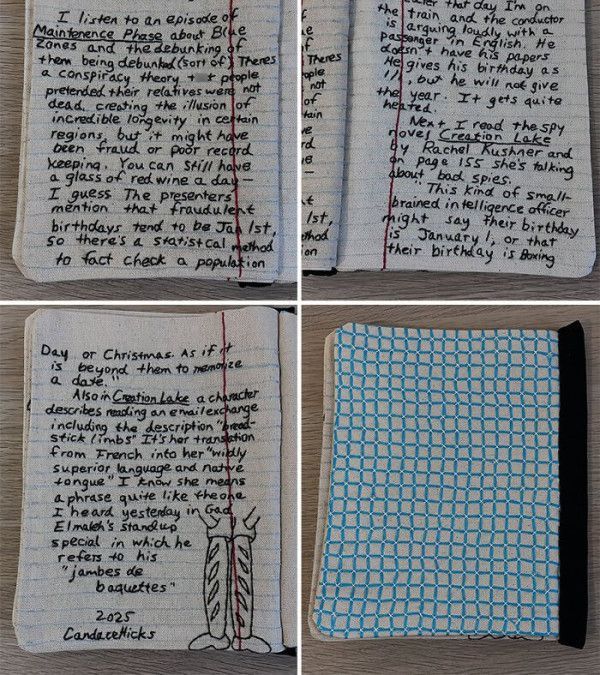 I listen to an episode of
Maintenence Phase about Blue
Zones and the debunking of
them being debunked (sort of) Theres
a conspiracy theory people
pretended their relatives were not
dead, creating the illusion of
incredible longevity in certain
regions, but it might have
been fraud or poor record
keeping. You can still have
a glass of red wine a day
I guess The presenters
mention that fraudulent
birthdays tend to be Jan 1st,
so there's a statistcal method
to fact check a population
that day I'm on
the train and the conductor
is arguing loudly with a
passenger in English. He
doesn't have his papers
He gives his birthday as
1/1, but he will not give
the year. It gets quite
heated.
Next I read the spy
novel Creation Lake
by Rachel Kushner and
on page 155 she's talking
about bad spies.
"This kind of small-
brained intelligence officer
might say their birthday
is January 1, or that
their birthday is Boxing
Day or Christmas. As if it
is beyond them to memorize
a date."
Also in Creation Lake a character
describes reading an email exchange
including the description "bread-
stick limbs" It's her translation
from French into her "wildly
superior language and native
tongue" I know she means
a phrase quite like the one
I heard yesterday in Gad
Elmaleh's standup
special in which he
refers to his
"jambes de
baguettes"
2025
Candace Hicks